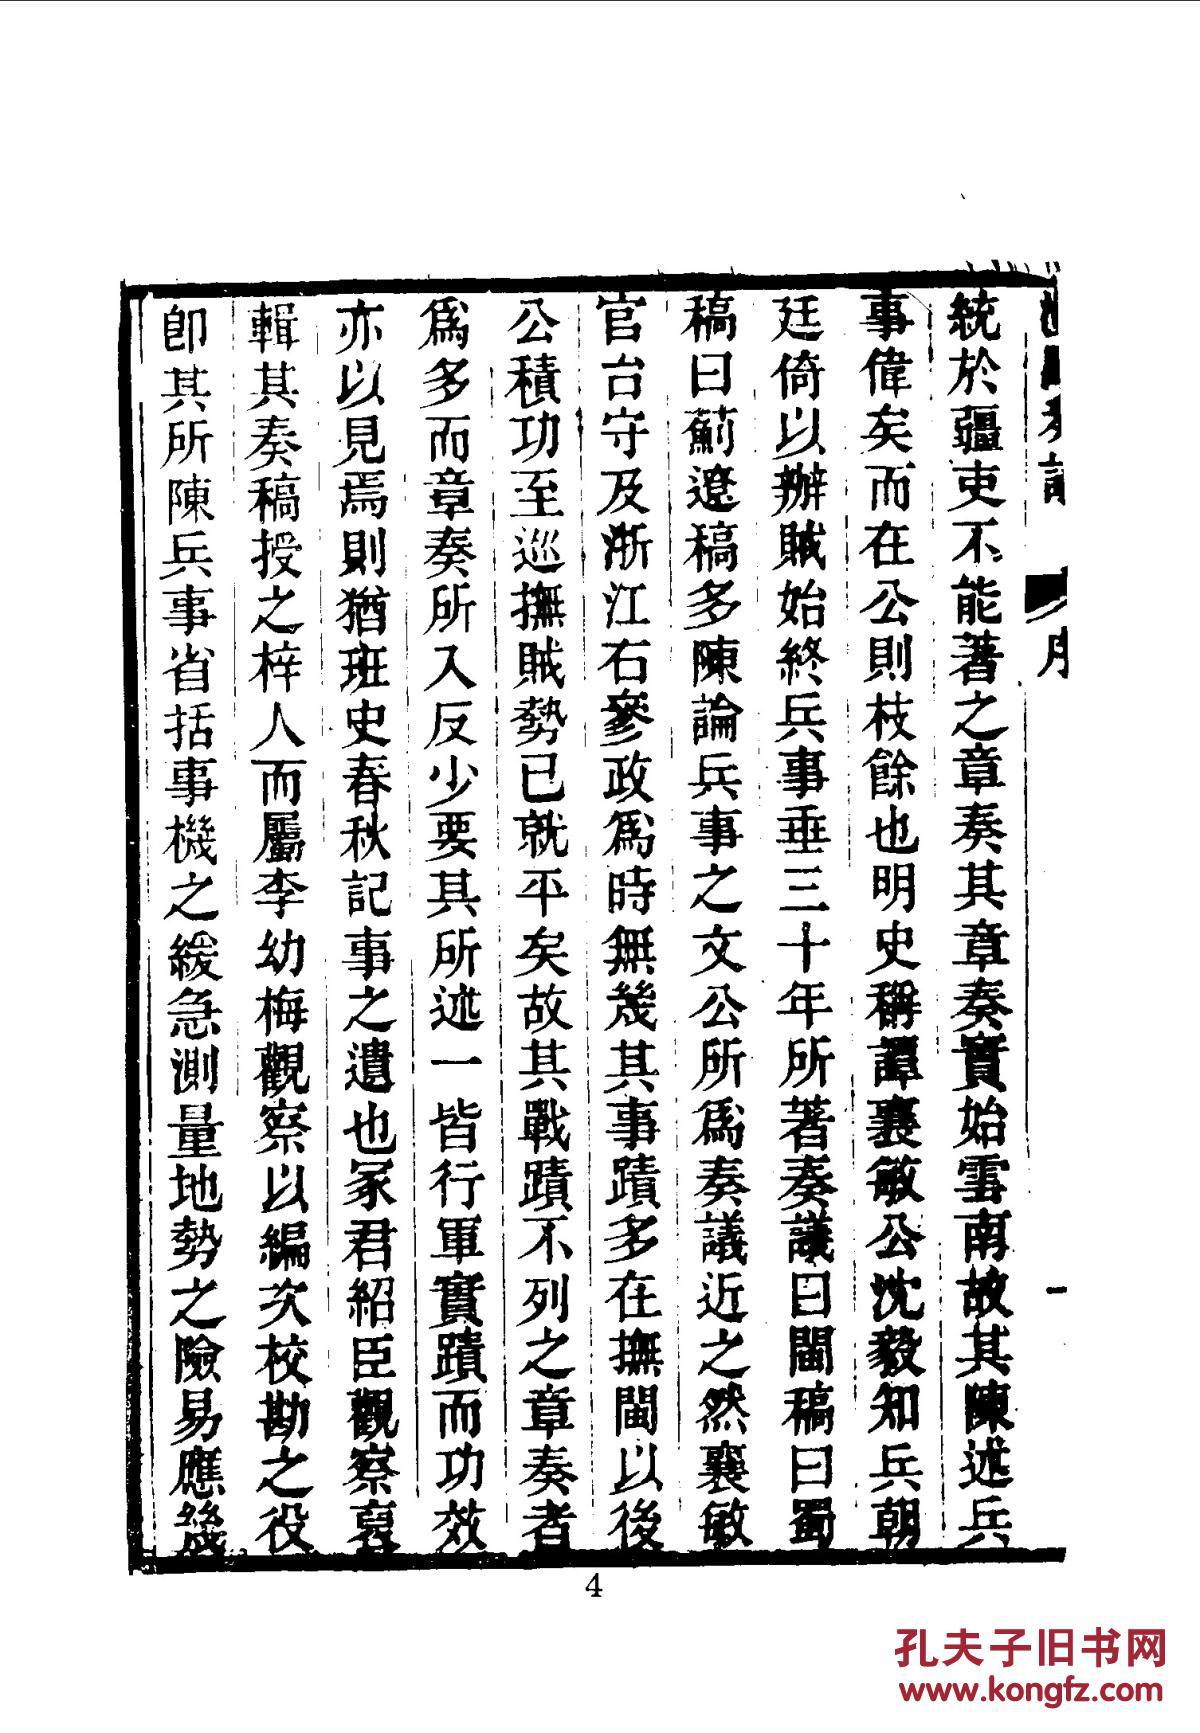 奏議
序
一
統於疆吏不能著之章奏其章奏實始雲南故其陳述兵
事偉矣而在公則枝餘也明史稱譚襄敏公沈毅知兵朝
廷倚以辦賊始終兵事垂三十年所著奏議曰閩稿曰蜀
稿曰薊遼稿多陳論兵事之文公所為奏議近之然襄敏
官台守及浙江右參政為時無幾其事蹟多在撫閩以後
公積功至巡撫賊勢已就平矣故其戰蹟不列之章奏者
為多而章奏所入反少要其所述一皆行軍實蹟而功效
亦以見焉則猶班史春秋記事之遺也冢君紹臣觀察裒
輯其奏稿授之梓人而屬李幼梅觀察以編次校勘之役
卽其所陳兵事省括事機之緩急測量地勢之險易應幾
4
孔夫子旧书网
www.kongfz.com